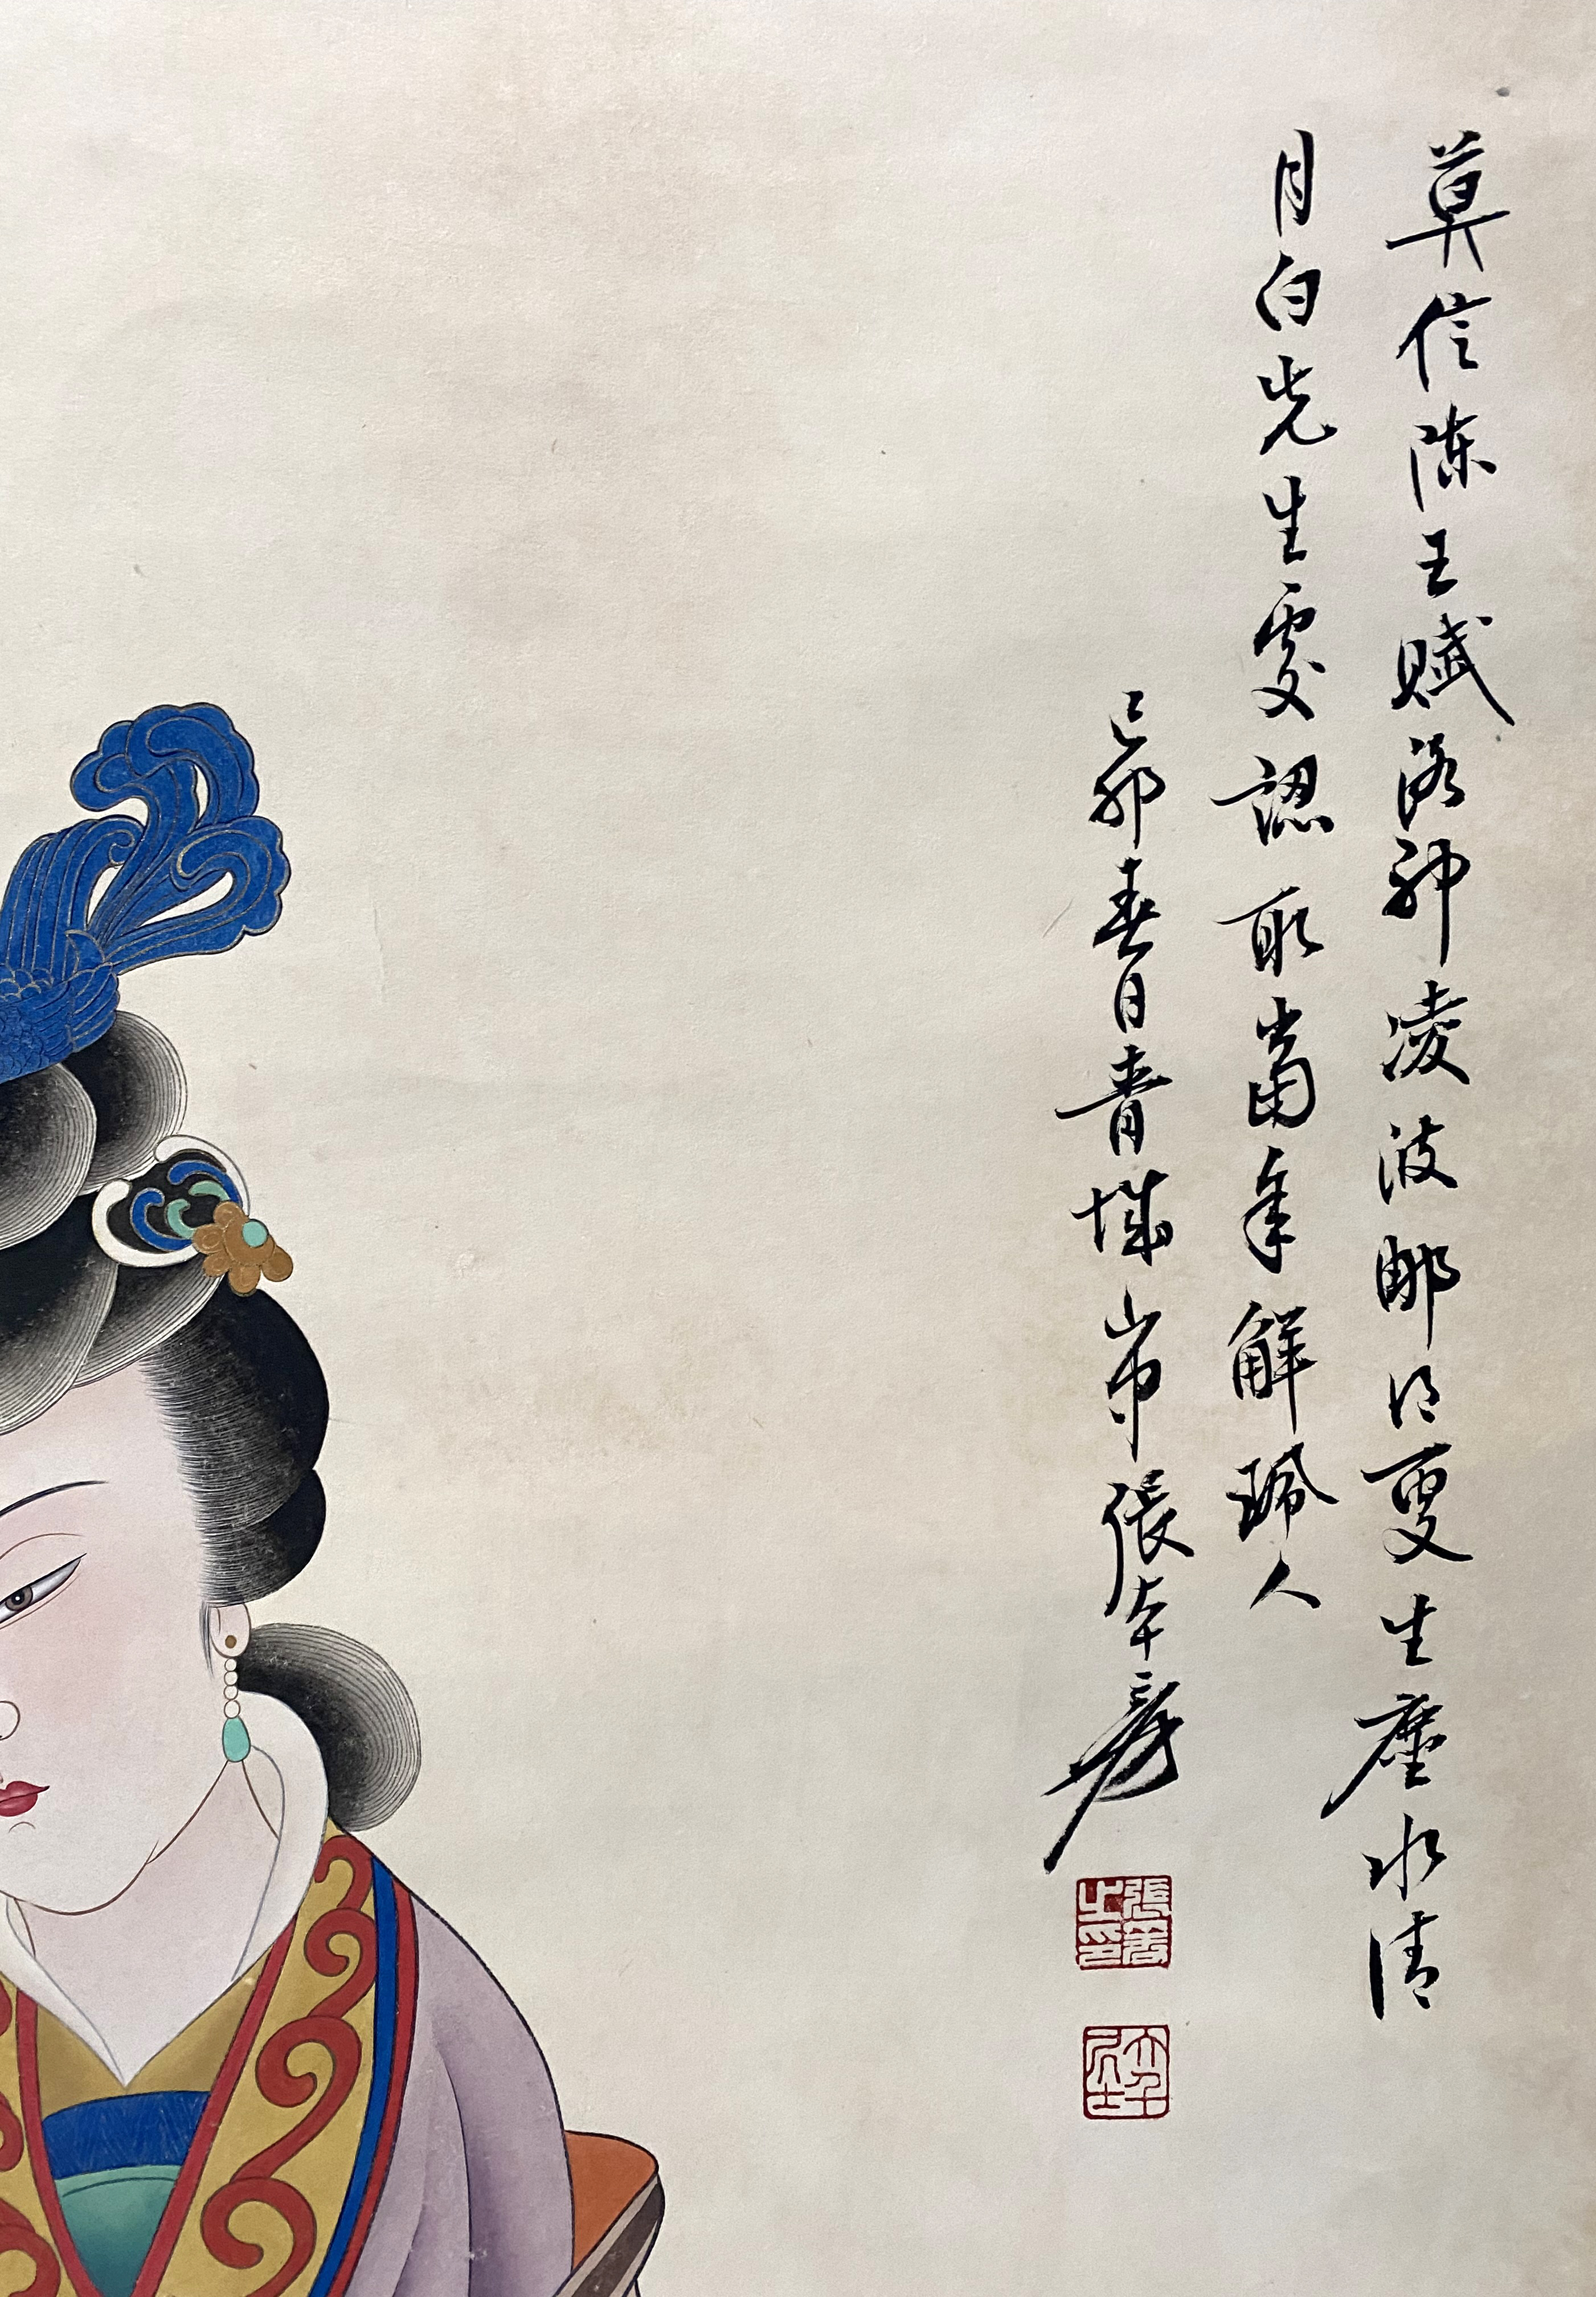 莫信陳王賦洛神凌波那得更生塵水清
月白先生處認取當年解珮人
己卯春日青城山中張大千爰
張爰之印
大千居士